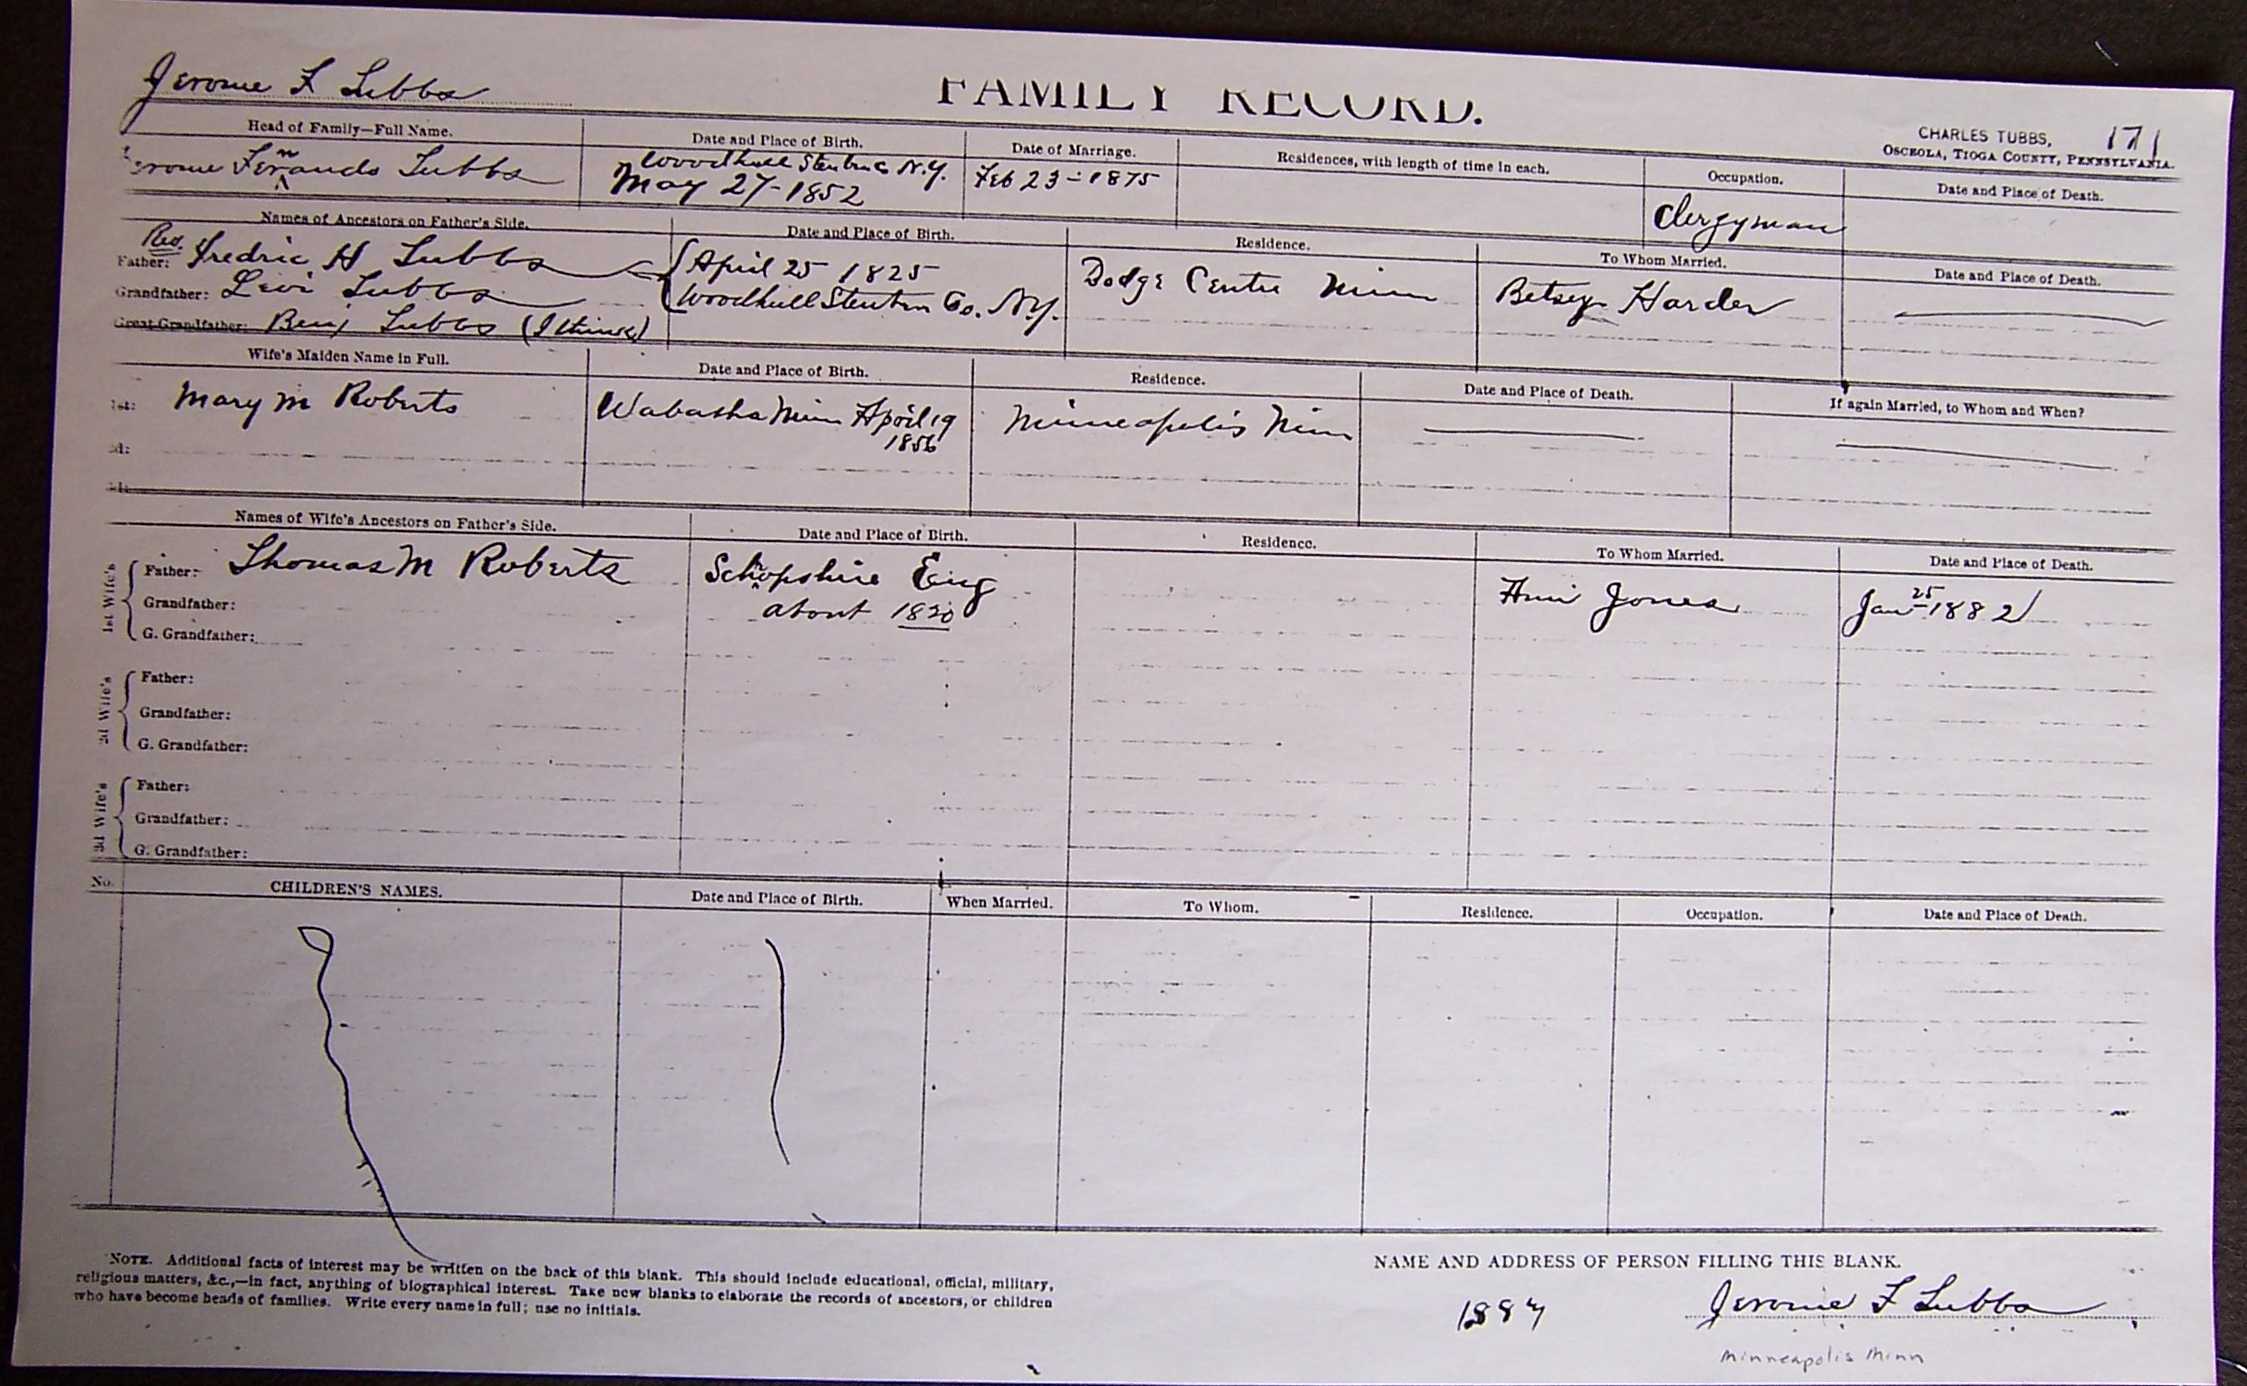 Jerome F Tubbs
FAMILY RECORD.
CHARLES TUBBS, 171
OSCEOLA, TIOGA COUNTY, PENNSYLVANIA.
Head of Family—Full Name. Date and Place of Birth. Date of Marriage. Residences, with length of time in each. Occupation. Date and Place of Death.
Jerome Fernando Tubbs Woodhull Steuben Co N.Y. Feb 23 - 1875 Clergyman
May 27 - 1852
Names of Ancestors on Father's Side. Date and Place of Birth. Residence. To Whom Married. Date and Place of Death.
Father: Rev. Fredric H Tubbs April 25 1825 Dodge Centre Minn Betsey Harder
Grandfather: Levi Tubbs Woodhull Steuben Co. N.Y.
Great Grandfather: Benj Tubbs (I think)
Wife's Maiden Name in Full. Date and Place of Birth. Residence. Date and Place of Death. If again Married, to Whom and When?
1st: Mary M Roberts Wabasha Minn April 19 Minneapolis Minn
1856
2d:
3d:
Names of Wife's Ancestors on Father's Side. Date and Place of Birth. Residence. To Whom Married. Date and Place of Death.
1st Wife's
Father: Thomas M Roberts Schropshire Eng Jones Jan 25 - 1882
Grandfather: about 1820
G. Grandfather:
2d Wife's
Father:
Grandfather:
G. Grandfather:
3d Wife's
Father:
Grandfather:
G. Grandfather:
No. CHILDREN'S NAMES. Date and Place of Birth. When Married. To Whom. Residence. Occupation. Date and Place of Death.
NOTE. Additional facts of interest may be written on the back of this blank. This should include educational, official, military,
religious matters, &c.,—in fact, anything of biographical interest. Take new blanks to elaborate the records of ancestors, or children
who have become heads of families. Write every name in full; use no initials.
NAME AND ADDRESS OF PERSON FILLING THIS BLANK.
1887 Jerome F Tubbs
Minneapolis Minn